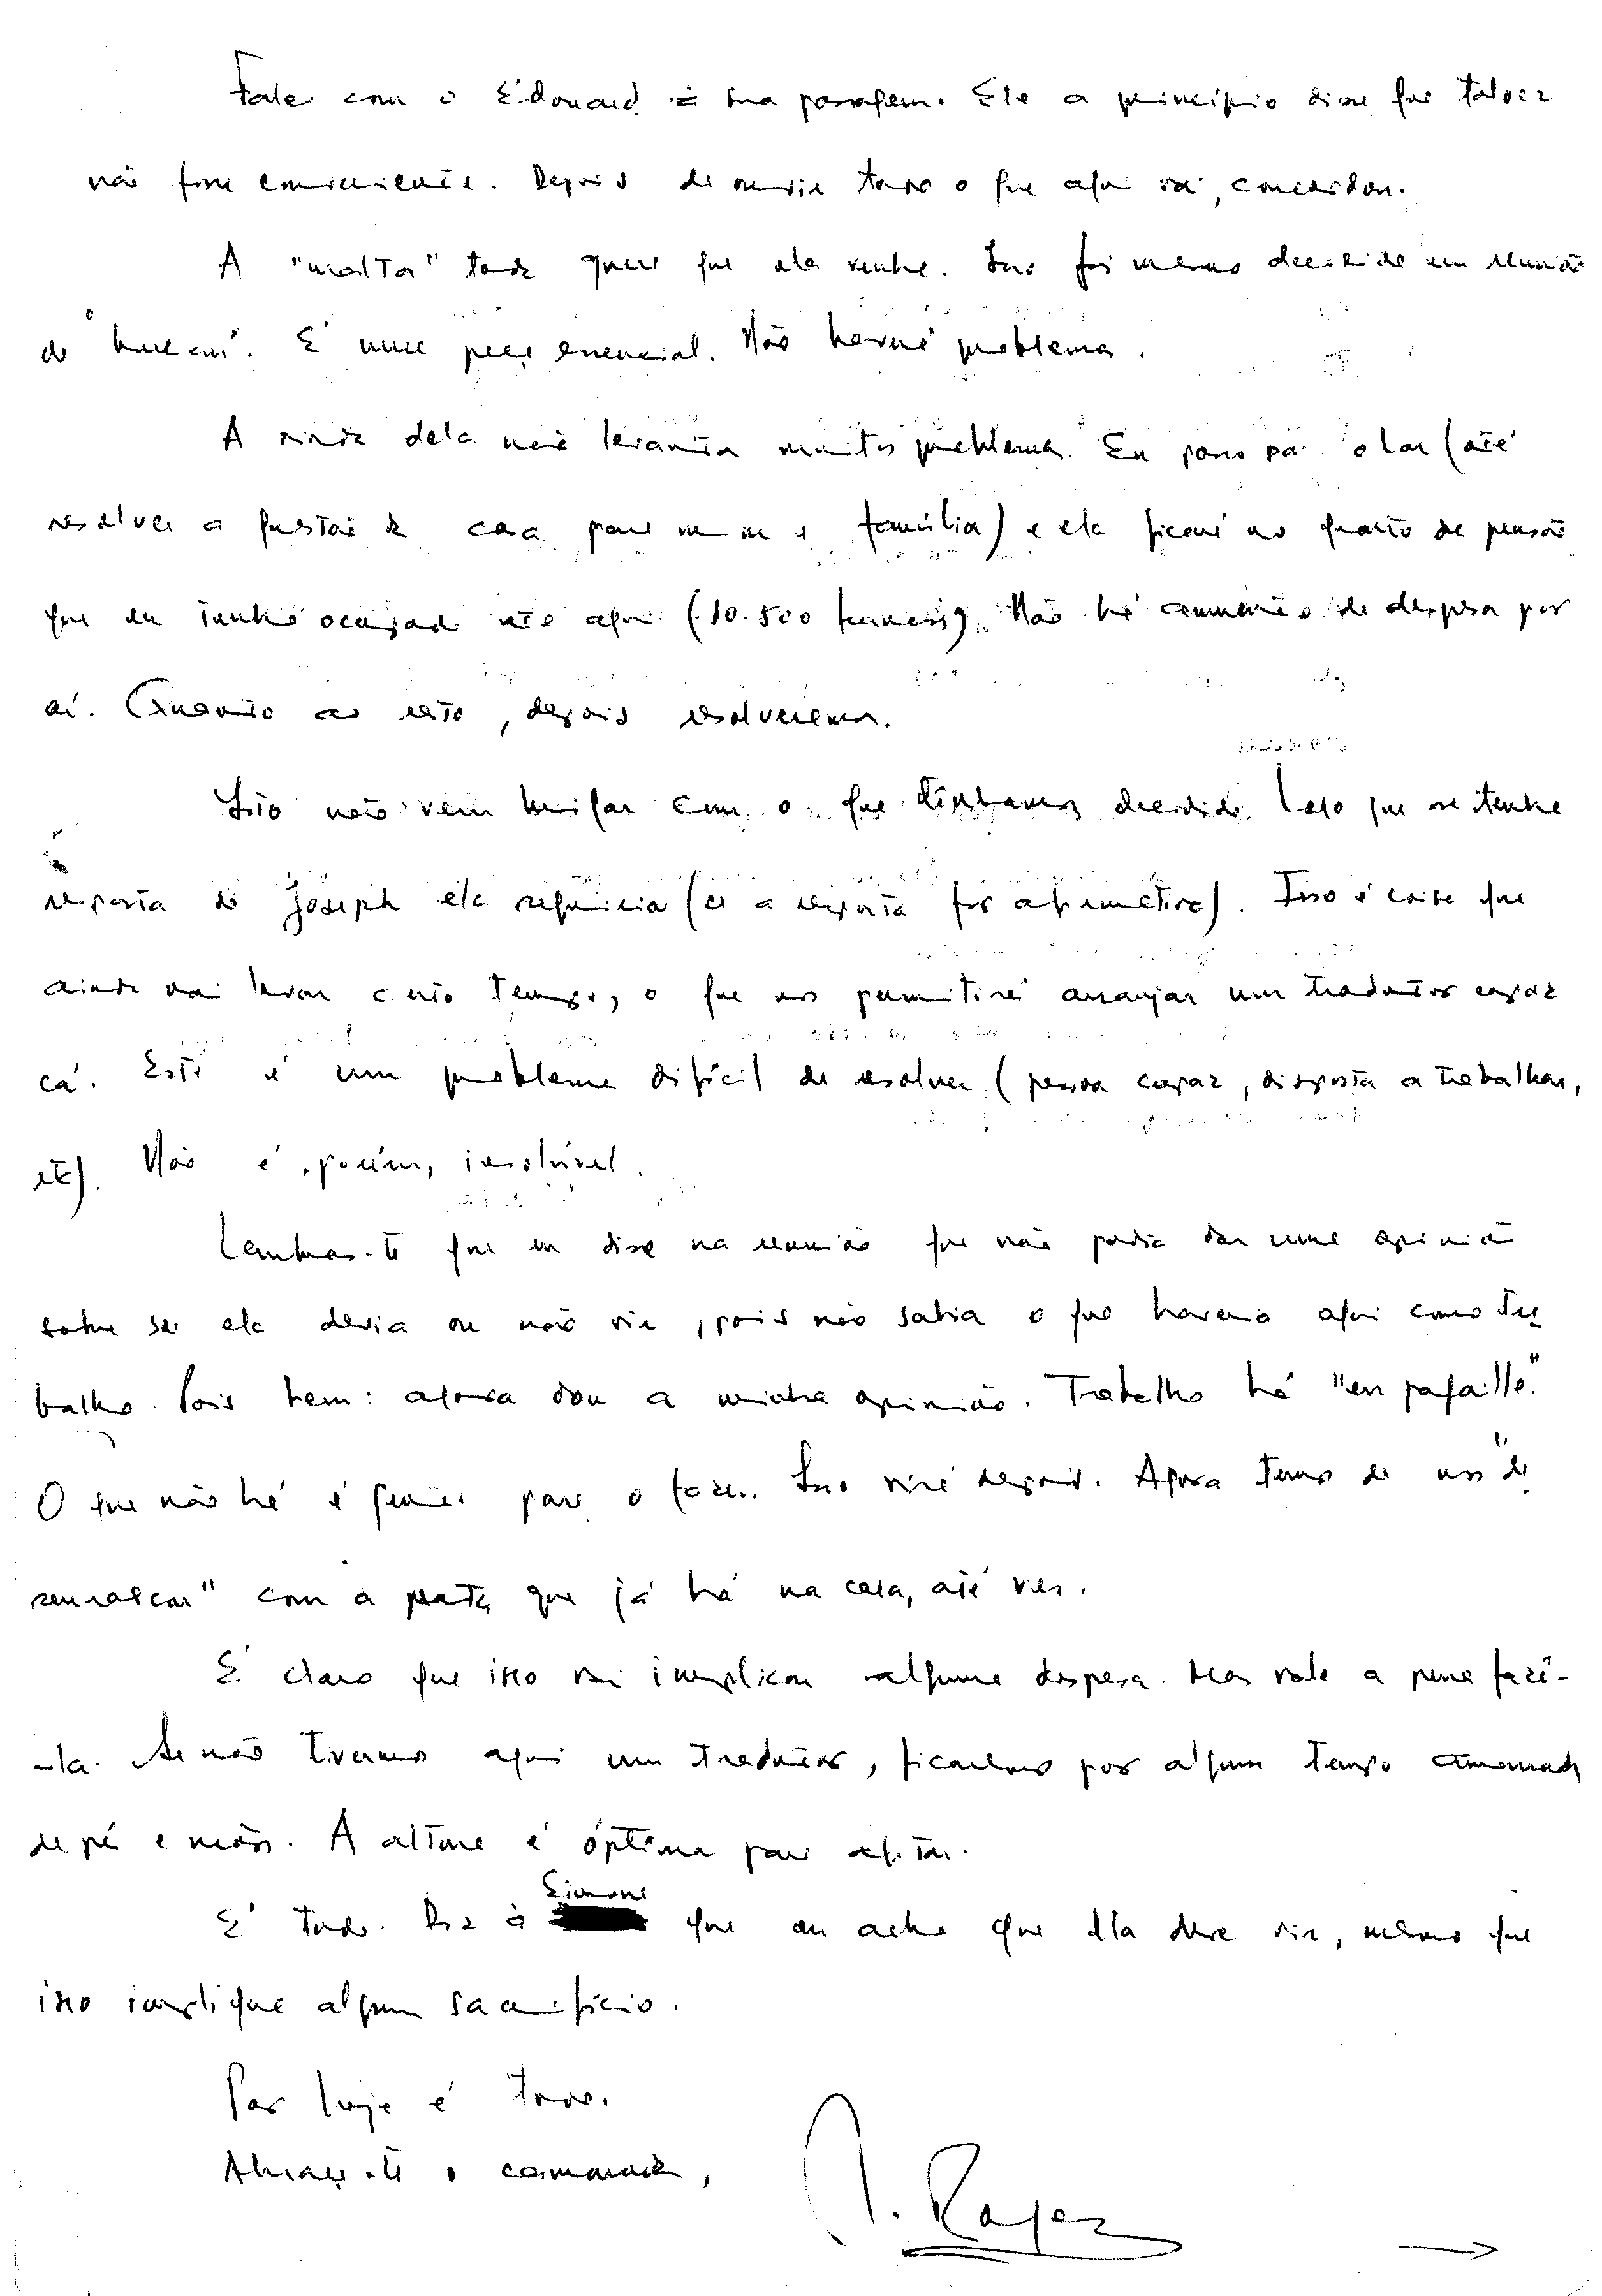 Falei com o Édouard à sua passagem. Ele a princípio disse que talvez
não fosse conveniente. Depois de ouvir tudo o que aqui vai, concordou.
A "malta" toda quer que ela venha. Isso foi mesmo decidido em reunião
do "bureau". É uma peça essencial. Não haverá problemas.
A vinda dela não levanta muitos problemas. Eu passo para o lar (até
resolver a questão de casa para mim e família) e ela ficará no quarto de pensão
que eu tenho ocupado até aqui (10.500 francos). Não há aumento de despesa por
aí. Quanto ao resto, depois resolveremos.
Isto não vem brigar com o que tínhamos decidido. Logo que se tenha
resposta do Joseph ela seguiria (se a resposta for afirmativa). Isso é coisa que
ainda vai levar certo tempo, o que nos permitirá arranjar um tradutor capaz
cá. Este é um problema difícil de resolver (pessoa capaz, disposta a trabalhar,
etc). Não é, porém, insolúvel.
Lembras-te que eu disse na reunião que não podia dar uma opinião
sobre se ela devia ou não vir, pois não sabia o que haveria aqui como tra-
balho. Pois bem: agora dou a minha opinião. Trabalho há "en pagaille".
O que não há é gente para o fazer. Isso virá depois. Agora temos de nos "de
senrascar" com a prata que já há na casa, até ver.
É claro que isso vai implicar alguma despesa. Mas vale a pena fazê-
-la. Se não tivermos aqui um tradutor, ficaremos por algum tempo amarrados
de pé e mãos. A altura é óptima para agitar.
É tudo. Diz à Simone que eu acho que ela deve vir, mesmo que
isso implique algum sacrifício.
Por hoje é tudo.
Abraça-te o camarada,